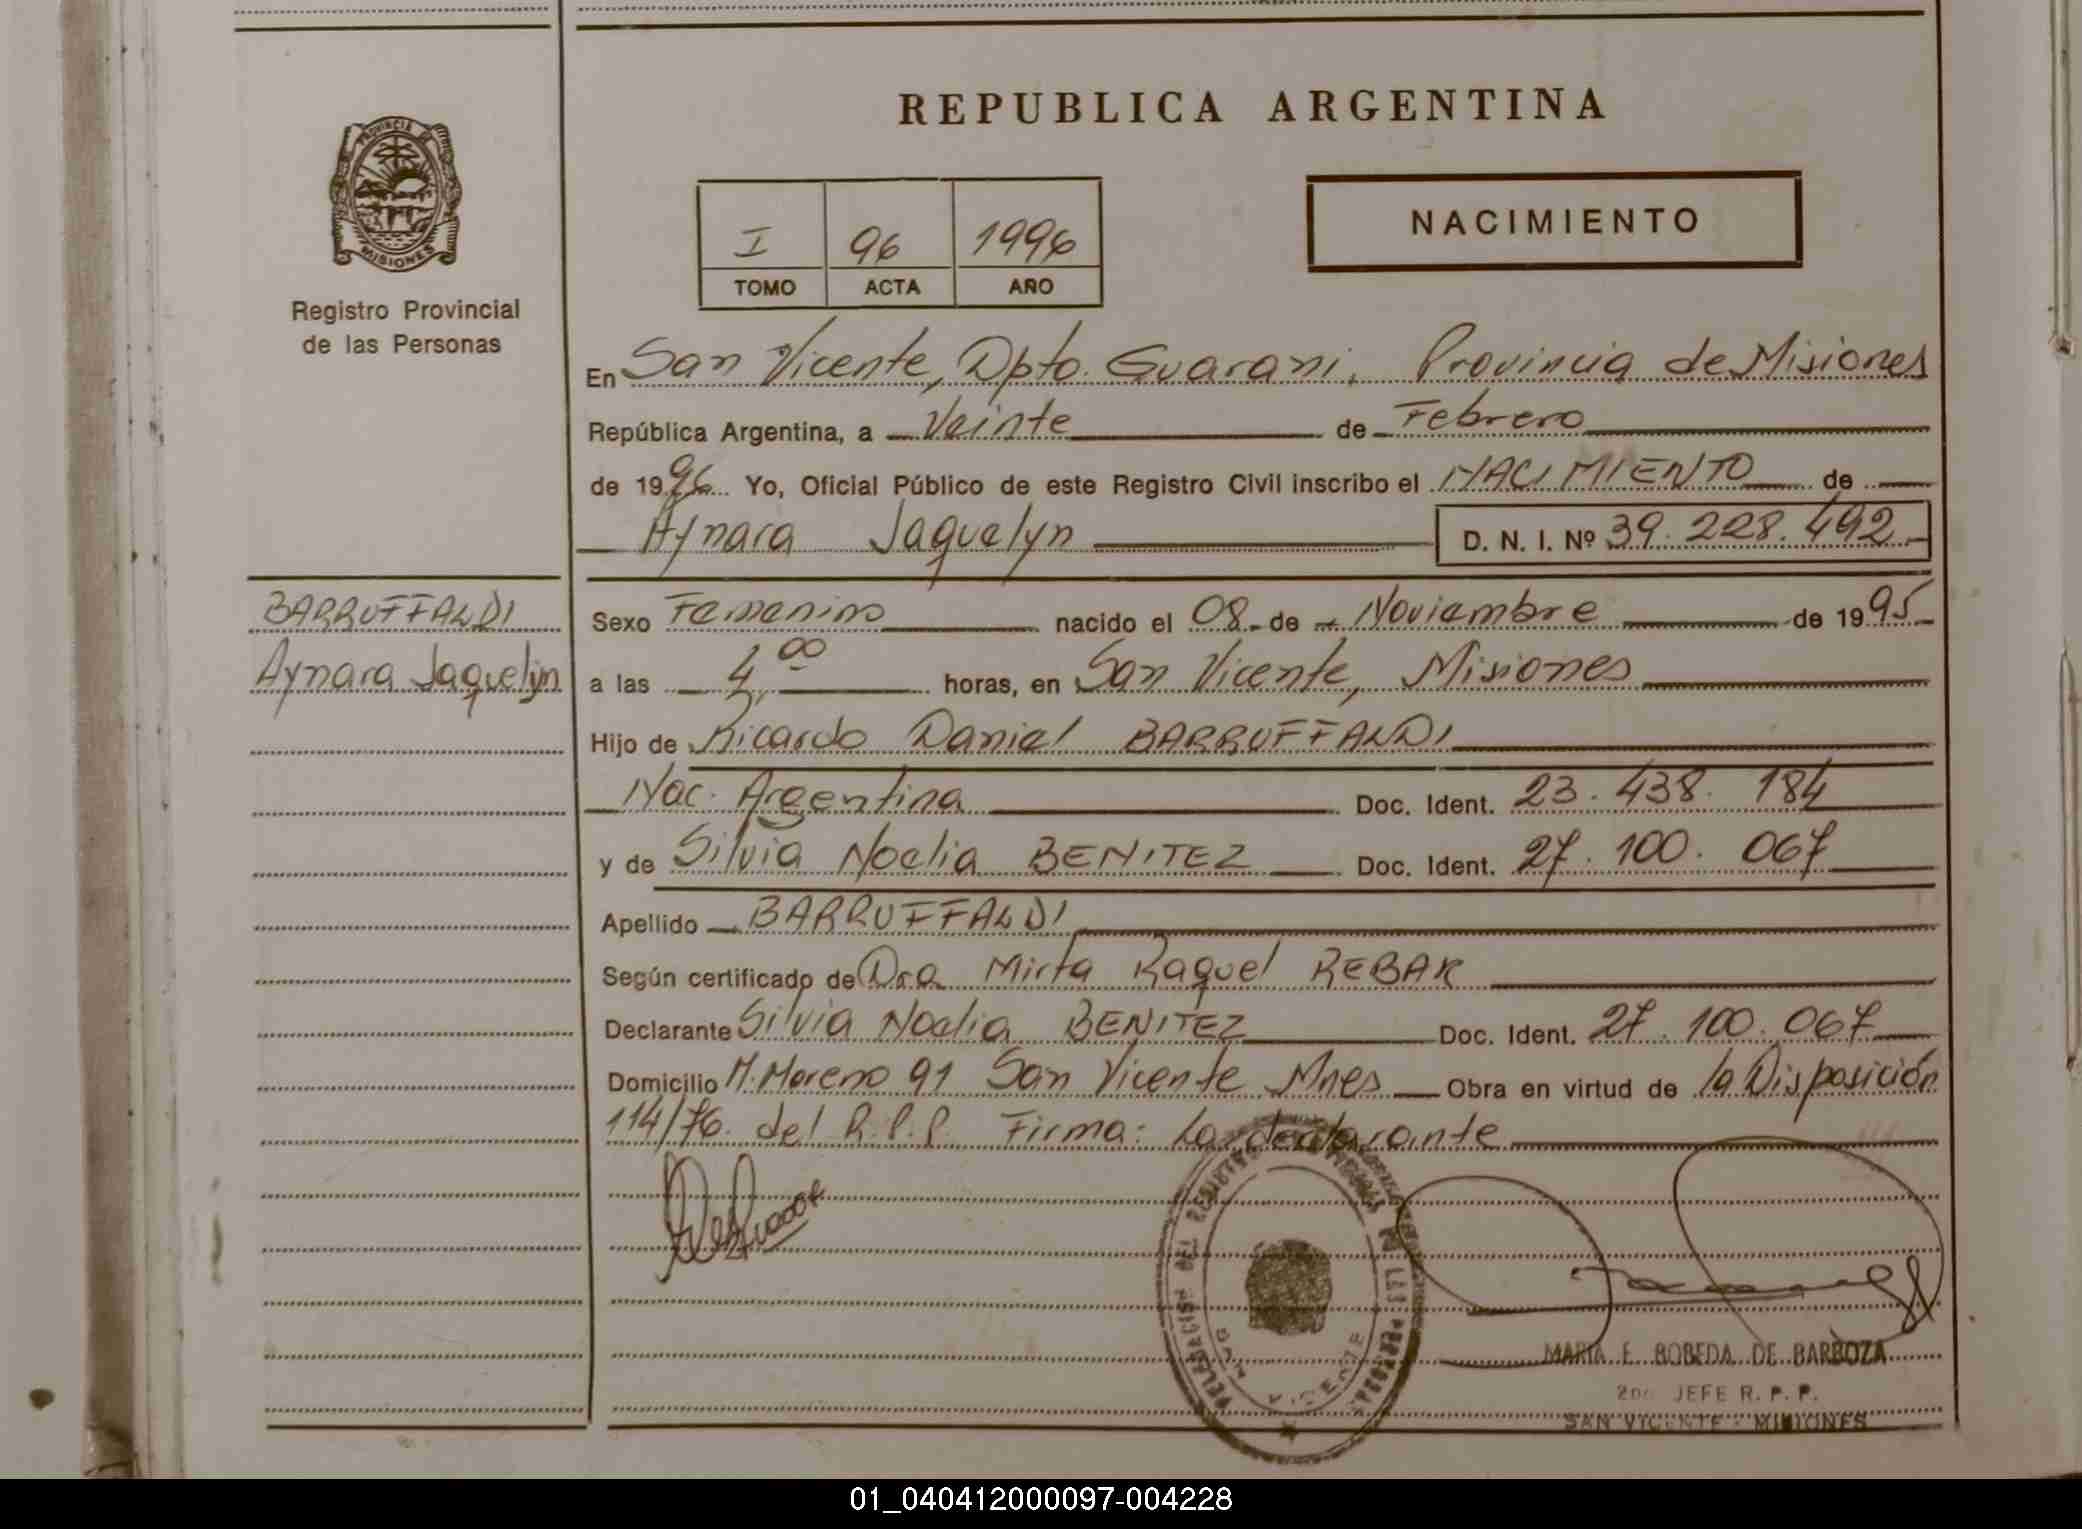 REPUBLICA ARGENTINA
PROVINCIA DE
MISIONES
Registro Provincial
de las Personas
I 96 1996
TOMO ACTA AÑO
NACIMIENTO
En San Vicente, Dpto. Guarani, Provincia de Misiones
República Argentina, a Veinte de Febrero
de 1996 Yo, Oficial Público de este Registro Civil inscribo el NACIMIENTO de
Aynara Jaquelyn D. N. I. Nº 39.228.492
BARRUFFALDI
Aynara Jaquelyn
Sexo Femenino nacido el 08 de Noviembre de 1995
a las 4,00 horas, en San Vicente, Misiones
Hijo de Ricardo Daniel BARRUFFALDI
Nac. Argentina Doc. Ident. 23.438.184
y de Silvia Noelia BENITEZ Doc. Ident. 27.100.067
Apellido BARRUFFALDI
Según certificado de Dra Mirta Raquel REBAK
Declarante Silvia Noelia BENITEZ Doc. Ident. 27.100.067
Domicilio M. Moreno 91 San Vicente Mnes Obra en virtud de la Disposición
114/76. del R.P.P. Firma: La declarante
SAN VICENTE
MARIA E. BOBEDA DE BARBOZA
2do JEFE R. P. P.
SAN VICENTE - MISIONES
01_040412000097-004228